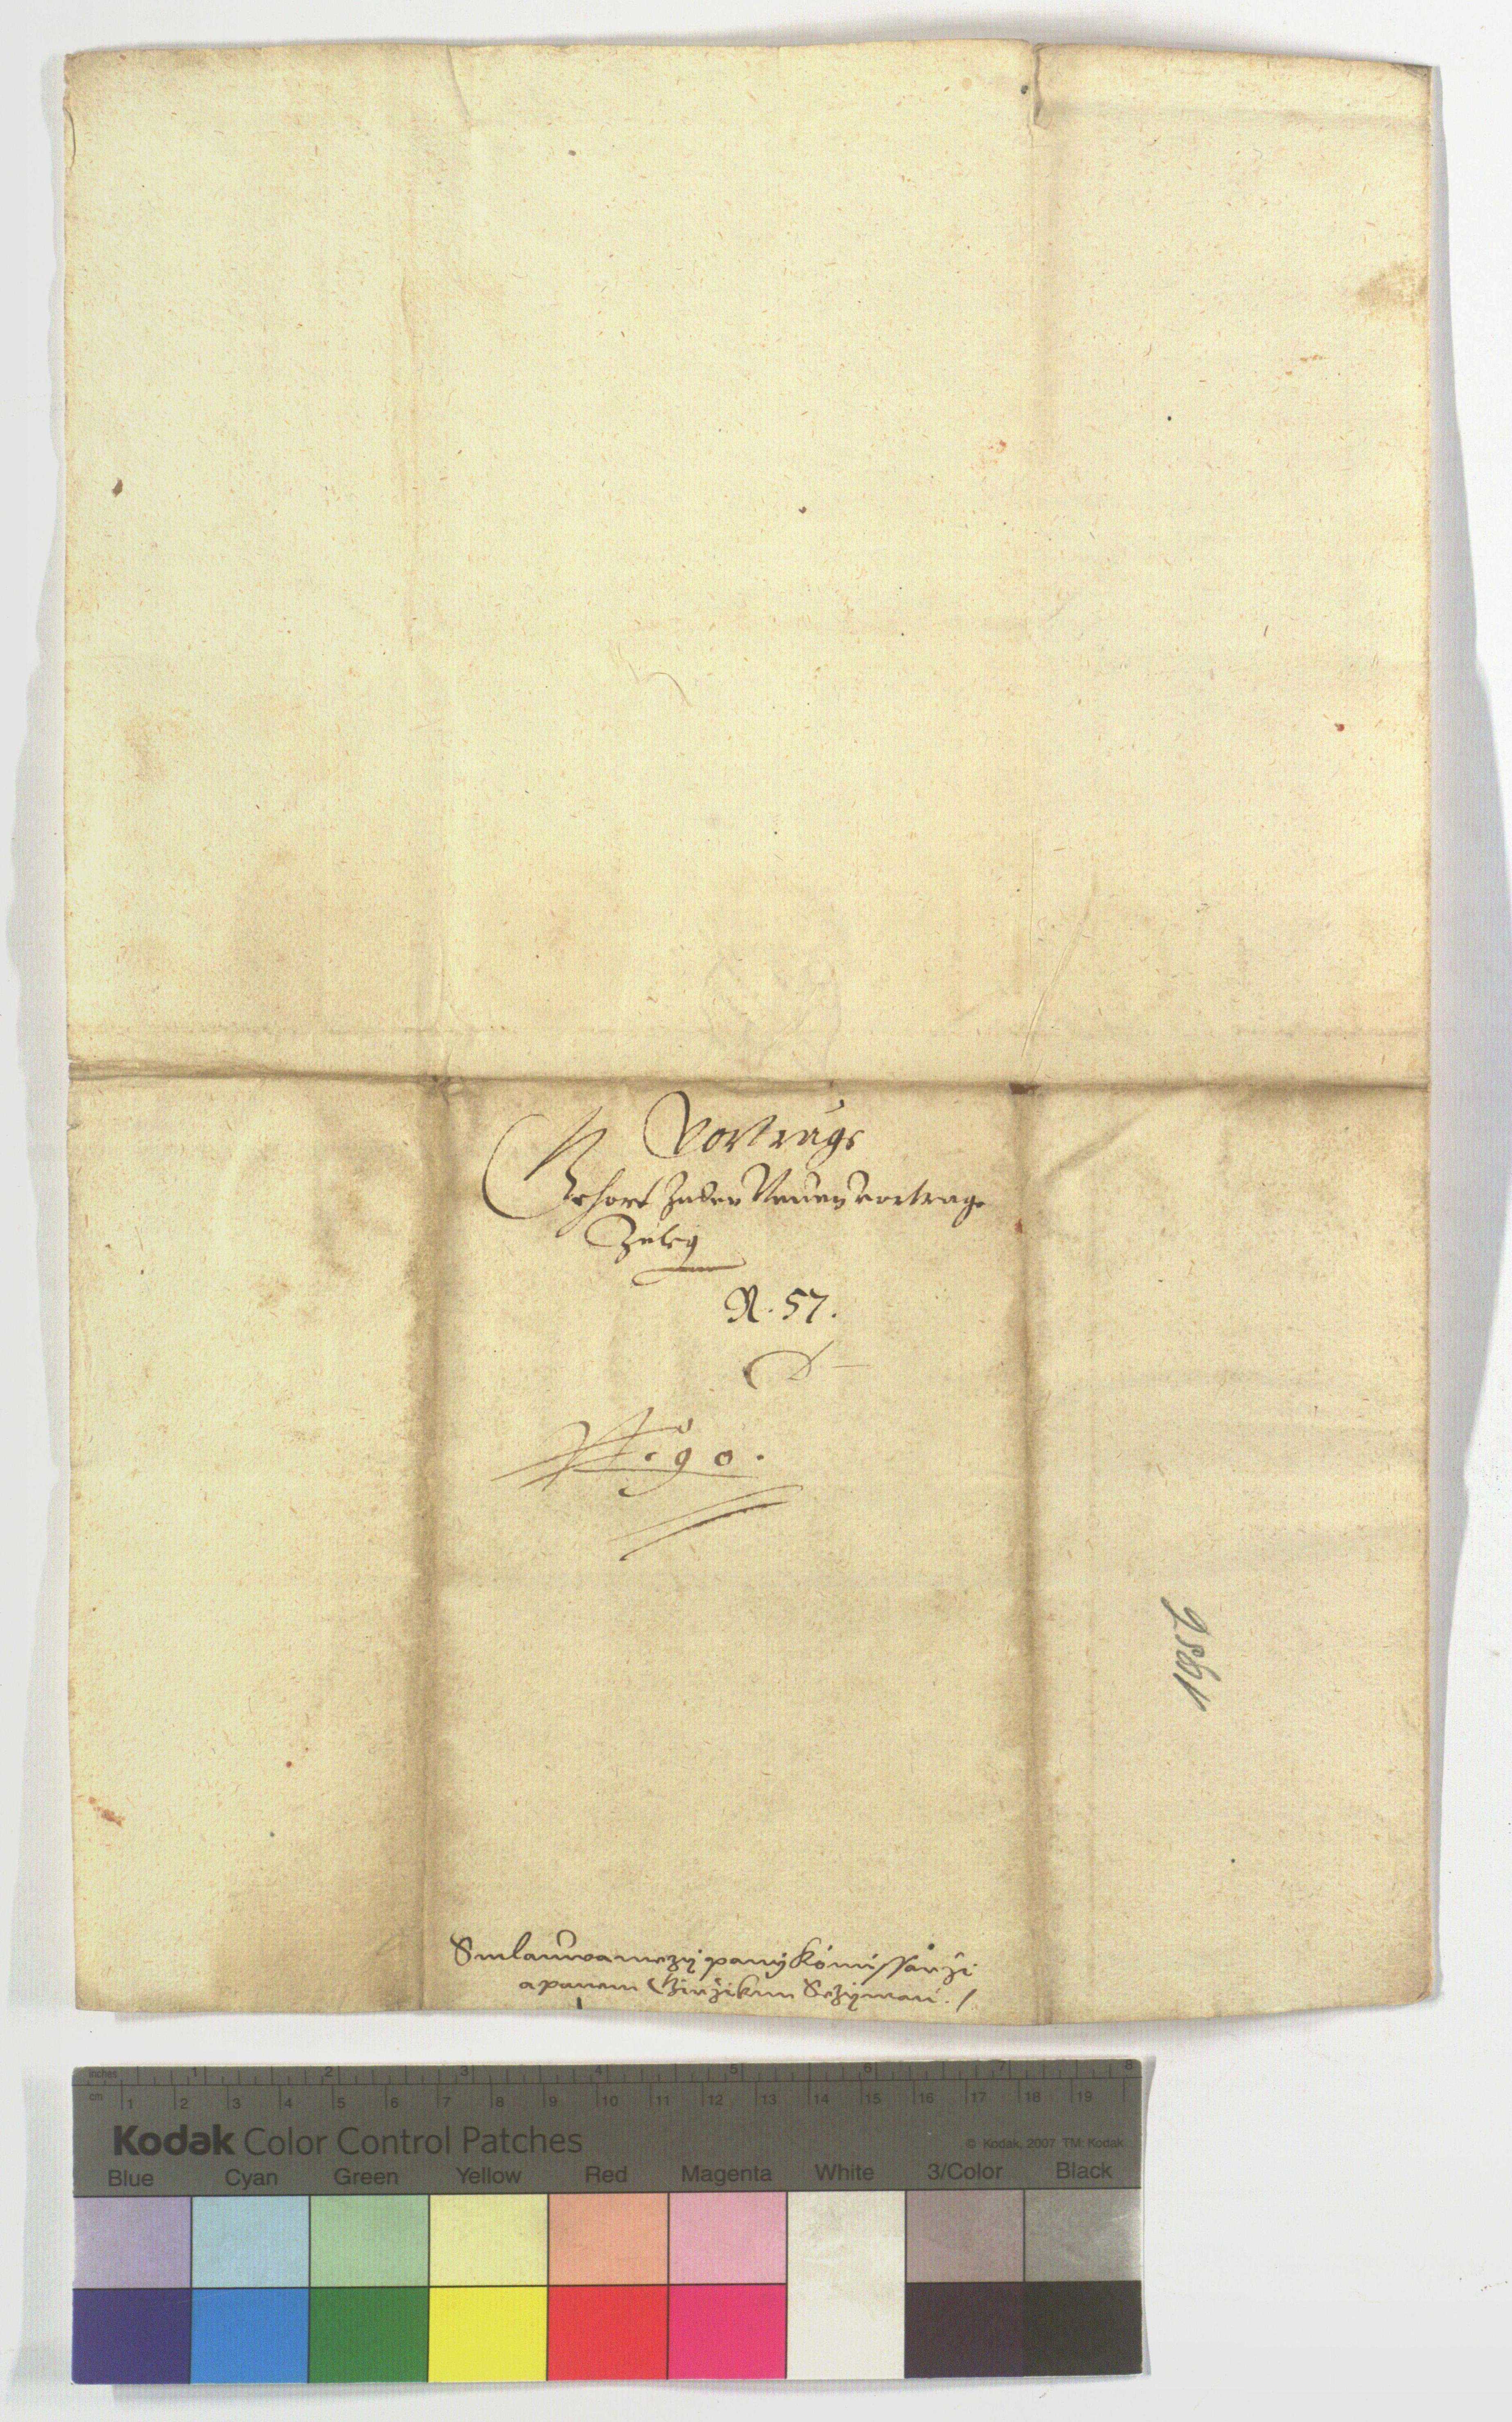 Vortrags
Gehort Zu den Neuen vortrage
Zuleg
N. 57.
N. 90.
1956
Smlauwa mezy pany Komissarži
a panem Cžiržikem Sezyman. /
inches 1 2 3 4 5 6 7 8
cm 1 2 3 4 5 6 7 8 9 10 11 12 13 14 15 16 17 18 19
Kodak Color Control Patches
© Kodak, 2007 TM: Kodak
Blue Cyan Green Yellow Red Magenta White 3/Color Black